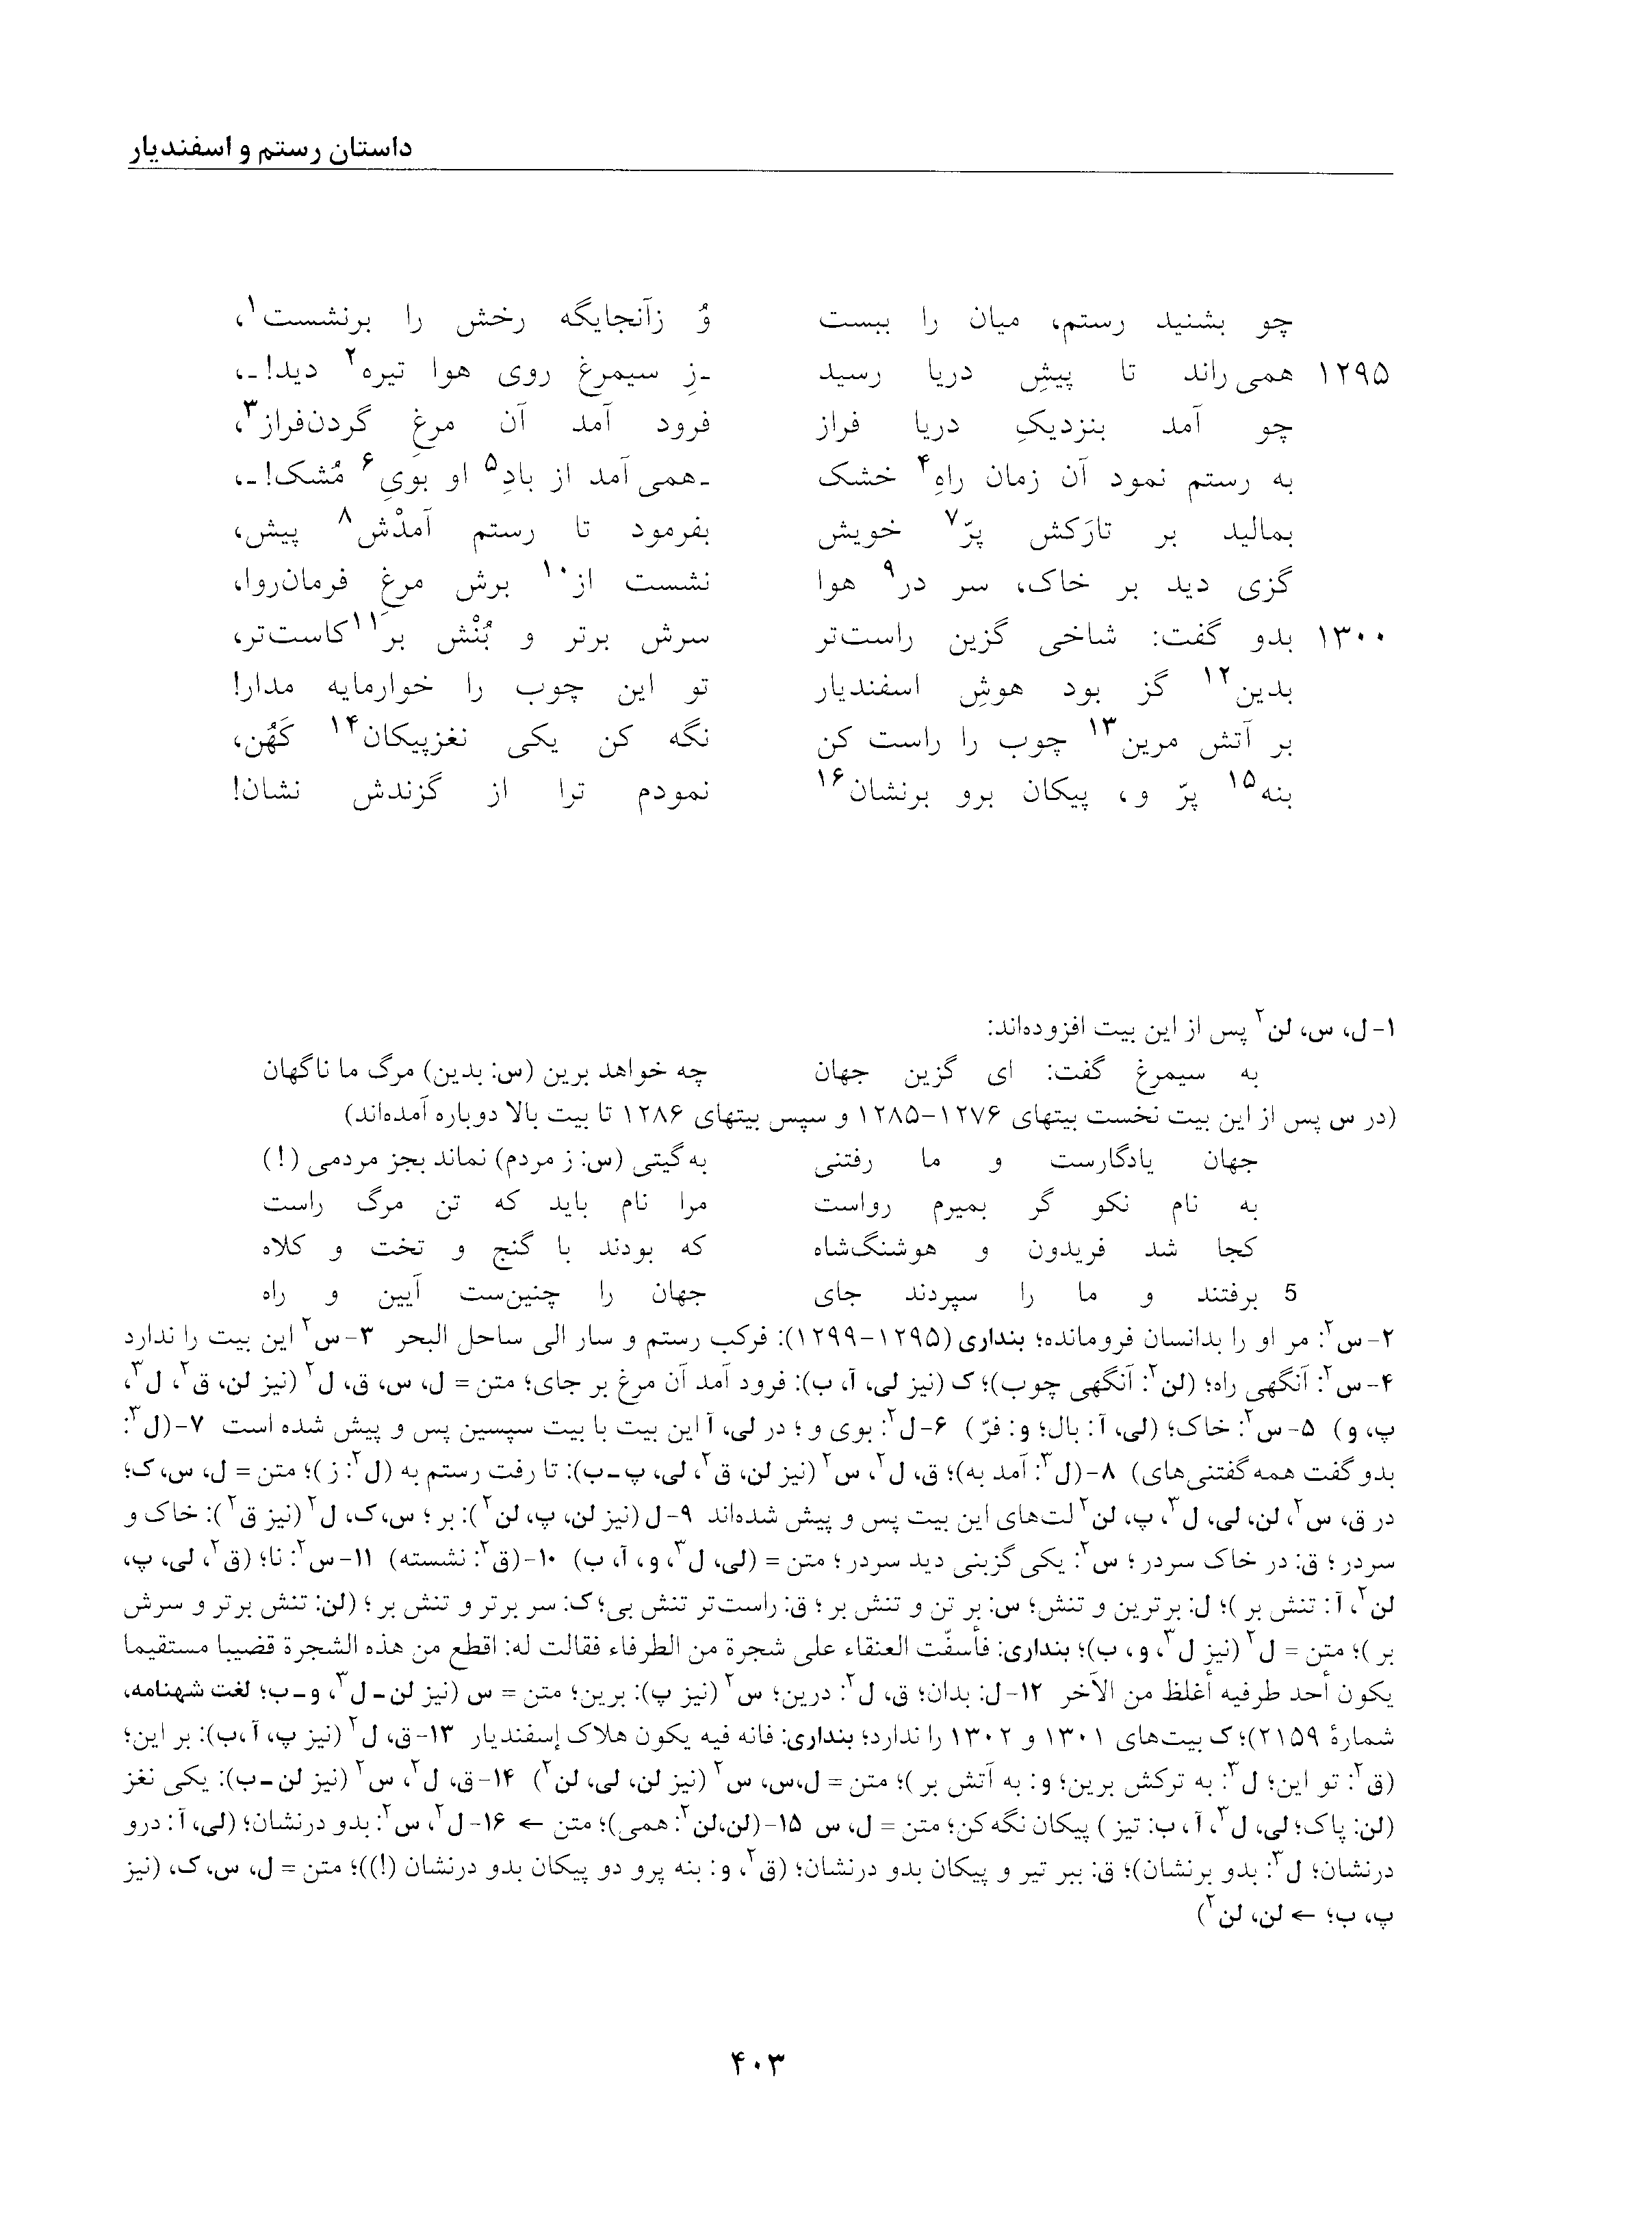 داستان رستم و اسفندیار
چو بشنید رستم، میان را ببست وُ زآنجایگه رخش را برنشست۱،
۱۲۹۵ همی‌راند تا پیشِ دریا رسید -زِ سیمرغ روی هوا تیره۲ دید!-،
چو آمد بنزدیکِ دریا فراز فرود آمد آن مرغِ گردن‌فراز۳،
به رستم نمود آن زمان راهِ۴ خشک -همی‌آمد از بادِ۵ او بویِ۶ مُشک!-،
بمالید بر تارَکش پرّ۷ خویش بفرمود تا رستم آمدْش۸ پیش،
گزی دید بر خاک، سر در۹ هوا نشست از۱۰ برش مرغِ فرمان‌روا،
۱۳۰۰ بدو گفت: شاخی گزین راست‌تر سرش برتر و بُنْش بر۱۱ کاست‌تر،
بدین۱۲ گز بود هوشِ اسفندیار تو این چوب را خوارمایه مدار!
بر آتش مرین۱۳ چوب را راست کن نگه کن یکی نغزپیکان۱۴ کَهُن،
بنه۱۵ پرّ و، پیکان برو برنشان۱۶ نمودم ترا از گزندش نشان!
۱-ل، س، لن۲ پس از این بیت افزوده‌اند:
به سیمرغ گفت: ای گزین جهان چه خواهد برین (س: بدین) مرگ ما ناگهان
(در س پس از این بیت نخست بیتهای ۱۲۷۶-۱۲۸۵ و سپس بیتهای ۱۲۸۶ تا بیت بالا دوباره آمده‌اند)
جهان یادگارست و ما رفتنی به گیتی (س: ز مردم) نماند بجز مردمی (!)
به نام نکو گر بمیرم رواست مرا نام باید که تن مرگ راست
کجا شد فریدون و هوشنگ‌شاه که بودند با گنج و تخت و کلاه
5 برفتند و ما را سپردند جای جهان را چنین‌ست آیین و راه
۲-س۲: مر او را بدانسان فرومانده؛ بنداری (۱۲۹۵-۱۲۹۹): فرکب رستم و سار الی ساحل البحر ۳-س۲ این بیت را ندارد
۴-س۲: آنگهی راه؛ (لن۲: آنگهی چوب)؛ ک (نیز لی، آ، ب): فرود آمد آن مرغ بر جای؛ متن = ل، س، ق، ل۲ (نیز لن، ق۲، ل۳،
پ، و) ۵-س۲: خاک؛ (لی، آ: بال؛ و: فرّ) ۶-ل۲: بوی و؛ در لی، آ این بیت با بیت سپسین پس و پیش شده است ۷-(ل۳:
بدو گفت همه گفتنی‌های) ۸-(ل۳: آمد به)؛ ق، ل۲، س۲ (نیز لن، ق۲، لی، پ-ب): تا رفت رستم به (ل۲: ز)؛ متن = ل، س، ک؛
در ق، س۲، لن، لی، ل۳، پ، لن۲ لت‌های این بیت پس و پیش شده‌اند ۹-ل (نیز لن، پ، لن۲): بر؛ س، ک، ل۲ (نیز ق۲): خاک و
سردر؛ ق: در خاک سردر؛ س۲: یکی گزبنی دید سردر؛ متن = (لی، ل۳، و، آ، ب) ۱۰-(ق۲: نشسته) ۱۱-س۲: نا؛ (ق۲، لی، پ،
لن۲، آ: تنش بر)؛ ل: برترین و تنش؛ س: بر تن و تنش بر؛ ق: راست‌تر تنش بی؛ ک: سر برتر و تنش بر؛ (لن: تنش برتر و سرش
بر)؛ متن = ل۲ (نیز ل۳، و، ب)؛ بنداری: فأسفّت العنقاء علی شجرة من الطرفاء فقالت له: اقطع من هذه الشجرة قضیبا مستقیما
یکون أحد طرفیه أغلظ من الآخر ۱۲-ل: بدان؛ ق، ل۲: درین؛ س۲ (نیز پ): برین؛ متن = س (نیز لن-ل۳، و-ب؛ لغت شهنامه،
شمارهٔ ۲۱۵۹)؛ ک بیت‌های ۱۳۰۱ و ۱۳۰۲ را ندارد؛ بنداری: فانه فیه یکون هلاک إسفندیار ۱۳-ق، ل۲ (نیز پ، آ، ب): بر این؛
(ق۲: تو این؛ ل۳: به ترکش برین؛ و: به آتش بر)؛ متن = ل، س، س۲ (نیز لن، لی، لن۲) ۱۴-ق، ل۲، س۲ (نیز لن-ب): یکی نغز
(لن: پاک؛ لی، ل۳، آ، ب: تیز) پیکان نگه کن؛ متن = ل، س ۱۵-(لن، لن۲: همی)؛ متن ← ۱۶-ل۲، س۲: بدو درنشان؛ (لی، آ: درو
درنشان؛ ل۳: بدو برنشان)؛ ق: ببر تیر و پیکان بدو درنشان؛ (ق۲، و: بنه پرو دو پیکان بدو درنشان (!))؛ متن = ل، س، ک، (نیز
پ، ب؛ ← لن، لن۲)
۴۰۳